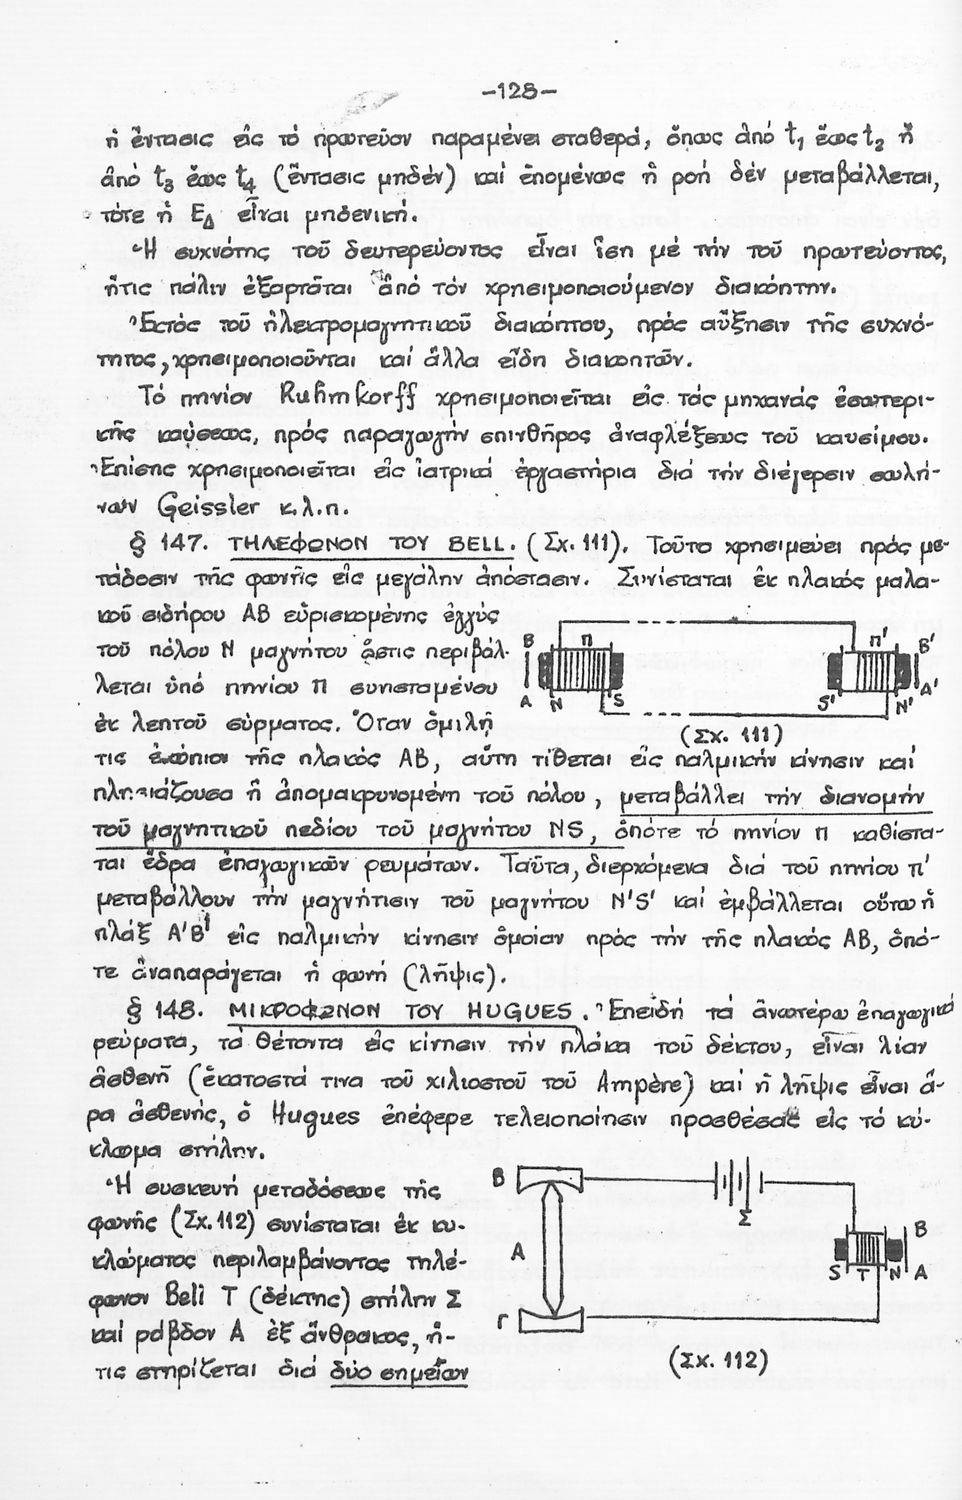 -128-
ἡ ἔντασις εἰς τό πρωτεῦον παραμένει σταθερά, ὅπως ἀπό t₁ ἕως t₂ ἤ
ἀπό t₃ ἕως t₄ (ἔντασις μηδέν) καί ἑπομένως ἡ ροή δέν μεταβάλλεται,
τότε ἡ E_Δ εἶναι μηδενική.
Ἡ συχνότης τοῦ δευτερεύοντος εἶναι ἴση μέ τήν τοῦ πρωτεύοντος,
ἥτις πάλιν ἐξαρτᾶται ἀπό τόν χρησιμοποιούμενον διακόπτην.
Ἐκτός τοῦ ἠλεκτρομαγνητικοῦ διακόπτου, πρός αὔξησιν τῆς συχνό-
τητος, χρησιμοποιοῦνται καί ἄλλα εἴδη διακοπτῶν.
Τό πηνίον Ruhmkorff χρησιμοποιεῖται εἰς τάς μηχανάς ἐσωτερι-
κῆς καύσεως, πρός παραγωγήν σπινθῆρος ἀναφλέξεως τοῦ καυσίμου.
Ἐπίσης χρησιμοποιεῖται εἰς ἰατρικά ἐργαστήρια διά τήν διέγερσιν σωλή-
νων Geissler κ.λ.π.
§ 147. ΤΗΛΕΦΩΝΟΝ ΤΟΥ BELL. (Σχ. 111). Τοῦτο χρησιμεύει πρός με-
τάδοσιν τῆς φωνῆς εἰς μεγάλην ἀπόστασιν. Συνίσταται ἐκ πλακός μαλα-
κοῦ σιδήρου ΑΒ εὑρισκομένης ἐγγύς
τοῦ πόλου Ν μαγνήτου ὅστις περιβάλ-
λεται ὑπό πηνίου Π συνισταμένου
ἐκ λεπτοῦ σύρματος. Ὅταν ὁμιλῇ
B Π Π' B'
A N S S' N' A'
(Σχ. 111)
τις ἐνώπιον τῆς πλακός ΑΒ, αὕτη τίθεται εἰς παλμικήν κίνησιν καί
πλησιάζουσα ἤ ἀπομακρυνομένη τοῦ πόλου, μεταβάλλει τήν διανομήν
τοῦ μαγνητικοῦ πεδίου τοῦ μαγνήτου NS, ὁπότε τό πηνίον Π καθίστα-
ται ἕδρα ἐπαγωγικῶν ρευμάτων. Ταῦτα, διερχόμενα διά τοῦ πηνίου Π'
μεταβάλλουν τήν μαγνήτισιν τοῦ μαγνήτου N'S' καί ἐμβάλλεται οὕτω ἡ
πλάξ Α'Β' εἰς παλμικήν κίνησιν ὁμοίαν πρός τήν τῆς πλακός ΑΒ, ὁπό-
τε ἀναπαράγεται ἡ φωνή (λῆψις).
§ 148. ΜΙΚΡΟΦΩΝΟΝ ΤΟΥ HUGUES. Ἐπειδή τά ἀνωτέρω ἐπαγωγικά
ρεύματα, τά θέτοντα εἰς κίνησιν τήν πλάκα τοῦ δέκτου, εἶναι λίαν
ἀσθενῆ (ἑκατοστά τινα τοῦ χιλιοστοῦ τοῦ Ampère) καί ἡ λῆψις εἶναι ἄ-
ρα ἀσθενής, ὁ Hugues ἐπέφερε τελειοποίησιν προσθέσας εἰς τό κύ-
κλωμα στήλην.
Ἡ συσκευή μεταδόσεως τῆς
φωνῆς (Σχ. 112) συνίσταται ἐκ κυ-
κλώματος περιλαμβάνοντος τηλέ-
φωνον Bell T (δέκτης) στήλην Σ
καί ράβδον Α ἐξ ἄνθρακος, ἥ-
τις στηρίζεται διά δύο σημείων
B
Σ
A
B
S T N A
Γ
(Σχ. 112)